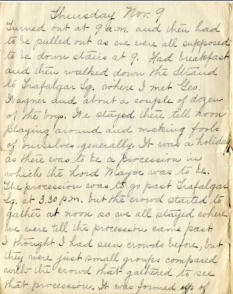 Thursday Nov. 9
Turned out at 9 a.m. and then had
to be pulled out as we were all supposed
to be down stairs at 9. Had breakfast
and then walked down the Strand
to Trafalgar Sq. where I met Geo.
Wagner and about a couple of dozen
of the boys. We stayed there till noon
playing around and making fools
of ourselves generally. It was a holiday
as there was to be a procession in
which the Lord Mayor was to be.
The procession was to go past Trafalgar
Sq. at 3.30 p.m. but the crowd started to
gather at noon so we all stayed where
we were till the procession came past.
I thought I had seen crowds before, but
they were just small groups compared
with the crowd that gathered to see
that procession. It was formed up of